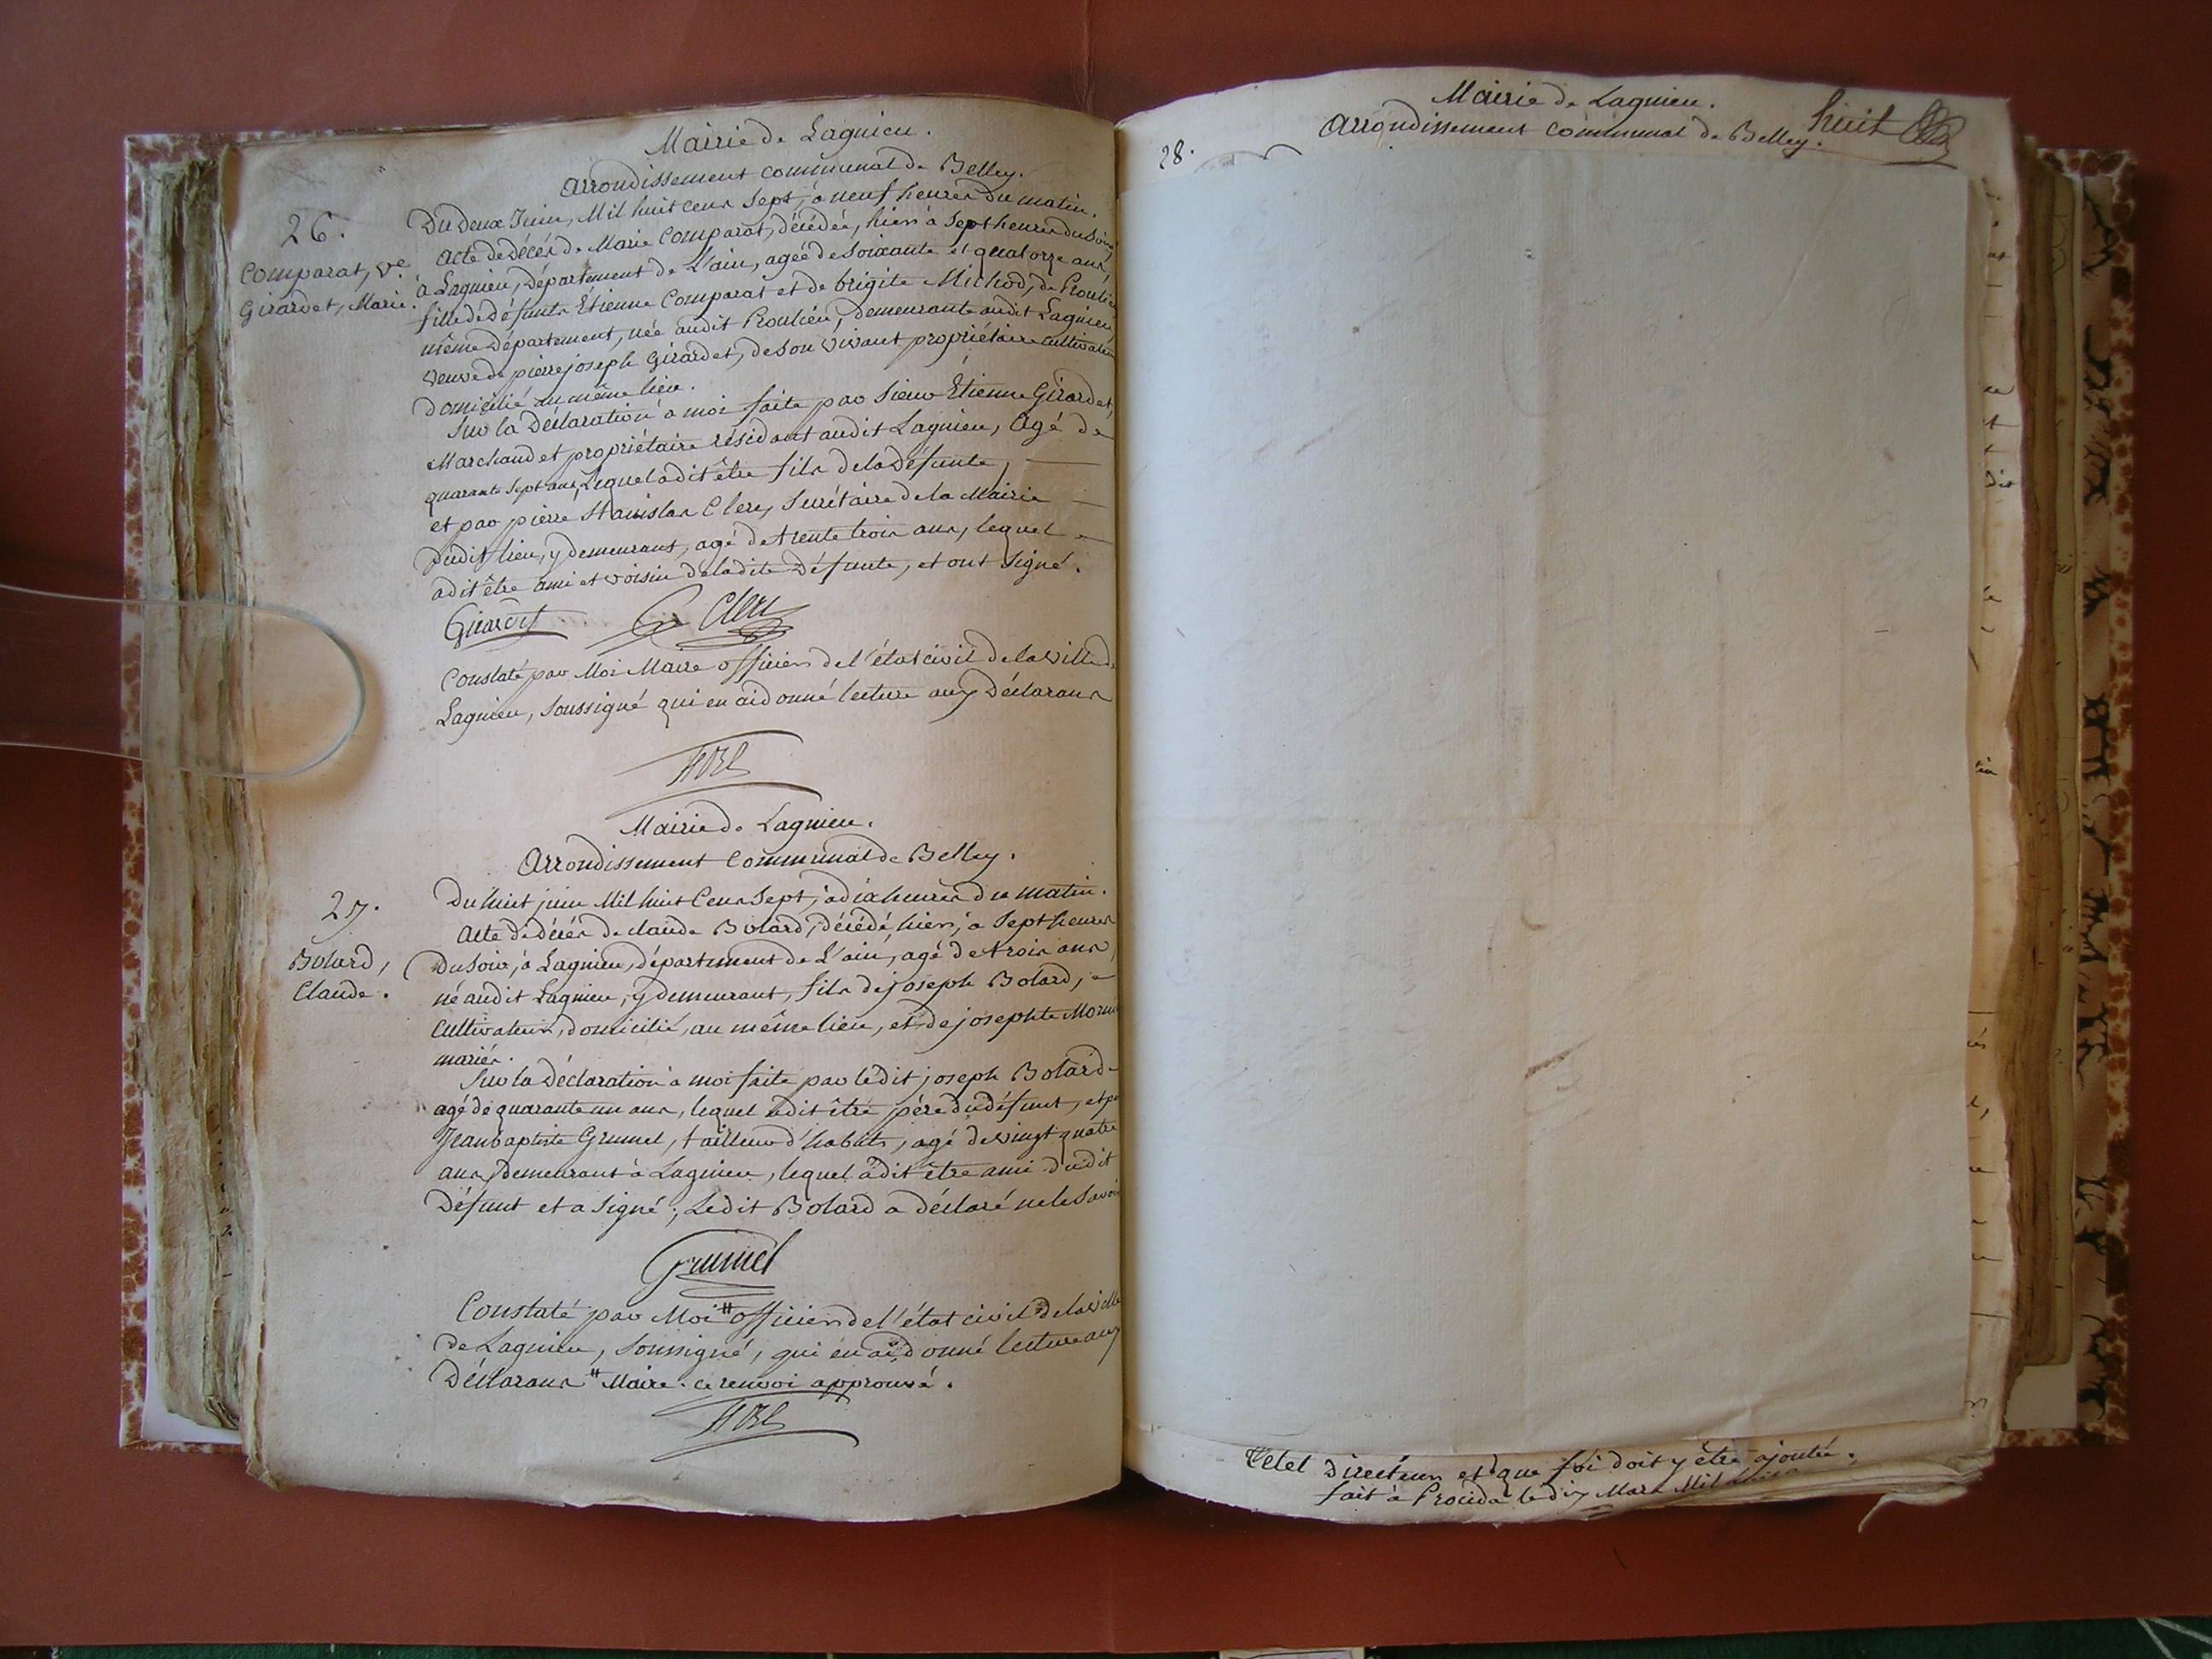 Mairie de Lagnieu.
Arrondissement communal de Belley.
26.
Comparat, ve.
Girardet, Marie.
Du deux Juin, Mil huit cens sept, à neuf heures du matin.
Acte de décès de Marie Comparat, décédée, hier à sept heures du soir,
à Lagnieu, département de L'ain, agée de soixante et quatorze ans,
fille de défunts Étienne Comparat et de brigite Michod, de Proulieu
même département, née audit Proulieu, demeurante audit Lagnieu
veuve de pierre joseph Girardet, de son vivant propriétaire cultivateur
domicilié au même lieu.
Sur la Déclaration à moi faite par sieur Étienne Girardet,
Marchand et propriétaire résidant audit Lagnieu, Agé de
quarante sept ans, Lequel a dit être fils de la défunte,
et par pierre stanislas Clerc, Secrétaire de la Mairie
dudit lieu, y demeurant, agé de trente trois ans, lequel
a dit être ami et voisin de ladite Défunte, et ont signé.
Girardet Clerc
Constaté par Moi Maire officier de l'état civil de la ville de
Lagnieu, soussigné qui en ai donné lecture aux Déclarans
Mairie de Lagnieu.
Arrondissement Communal de Belley.
27.
Bolard,
Claude.
Du huit juin Mil huit Cens Sept, à dix heures du matin.
Acte de décès de claude Bolard, décédé, hier, à sept heures
Du soir, à Lagnieu, département de L'ain, agé de trois ans
né audit Lagnieu, y demeurant, fils de joseph Bolard,
Cultivateur, domicilié, au même lieu, et de josephte
mariés.
Sur la Déclaration à moi faite par ledit joseph Bolard
agé de quarante un ans, lequel a dit être père du défunt, et par
Jean baptiste Grumel, tailleur d'habits, agé de vingt quatre
ans, demeurant à Lagnieu, lequel a dit être ami dudit
Défunt et a signé; Ledit Bolard a déclaré ne le savoir
Grumel
Constaté par Moi # officier de l'état civil de la ville
de Lagnieu, soussigné, qui en ai donné lecture aux
Déclarans # Maire. ce renvoi approuvé.
Mairie de Lagnieu.
Arrondissement communal de Belley.
huit
28.
Directeur et que foi doit y être ajoutée.
fait à Procida le dix Mars Mil